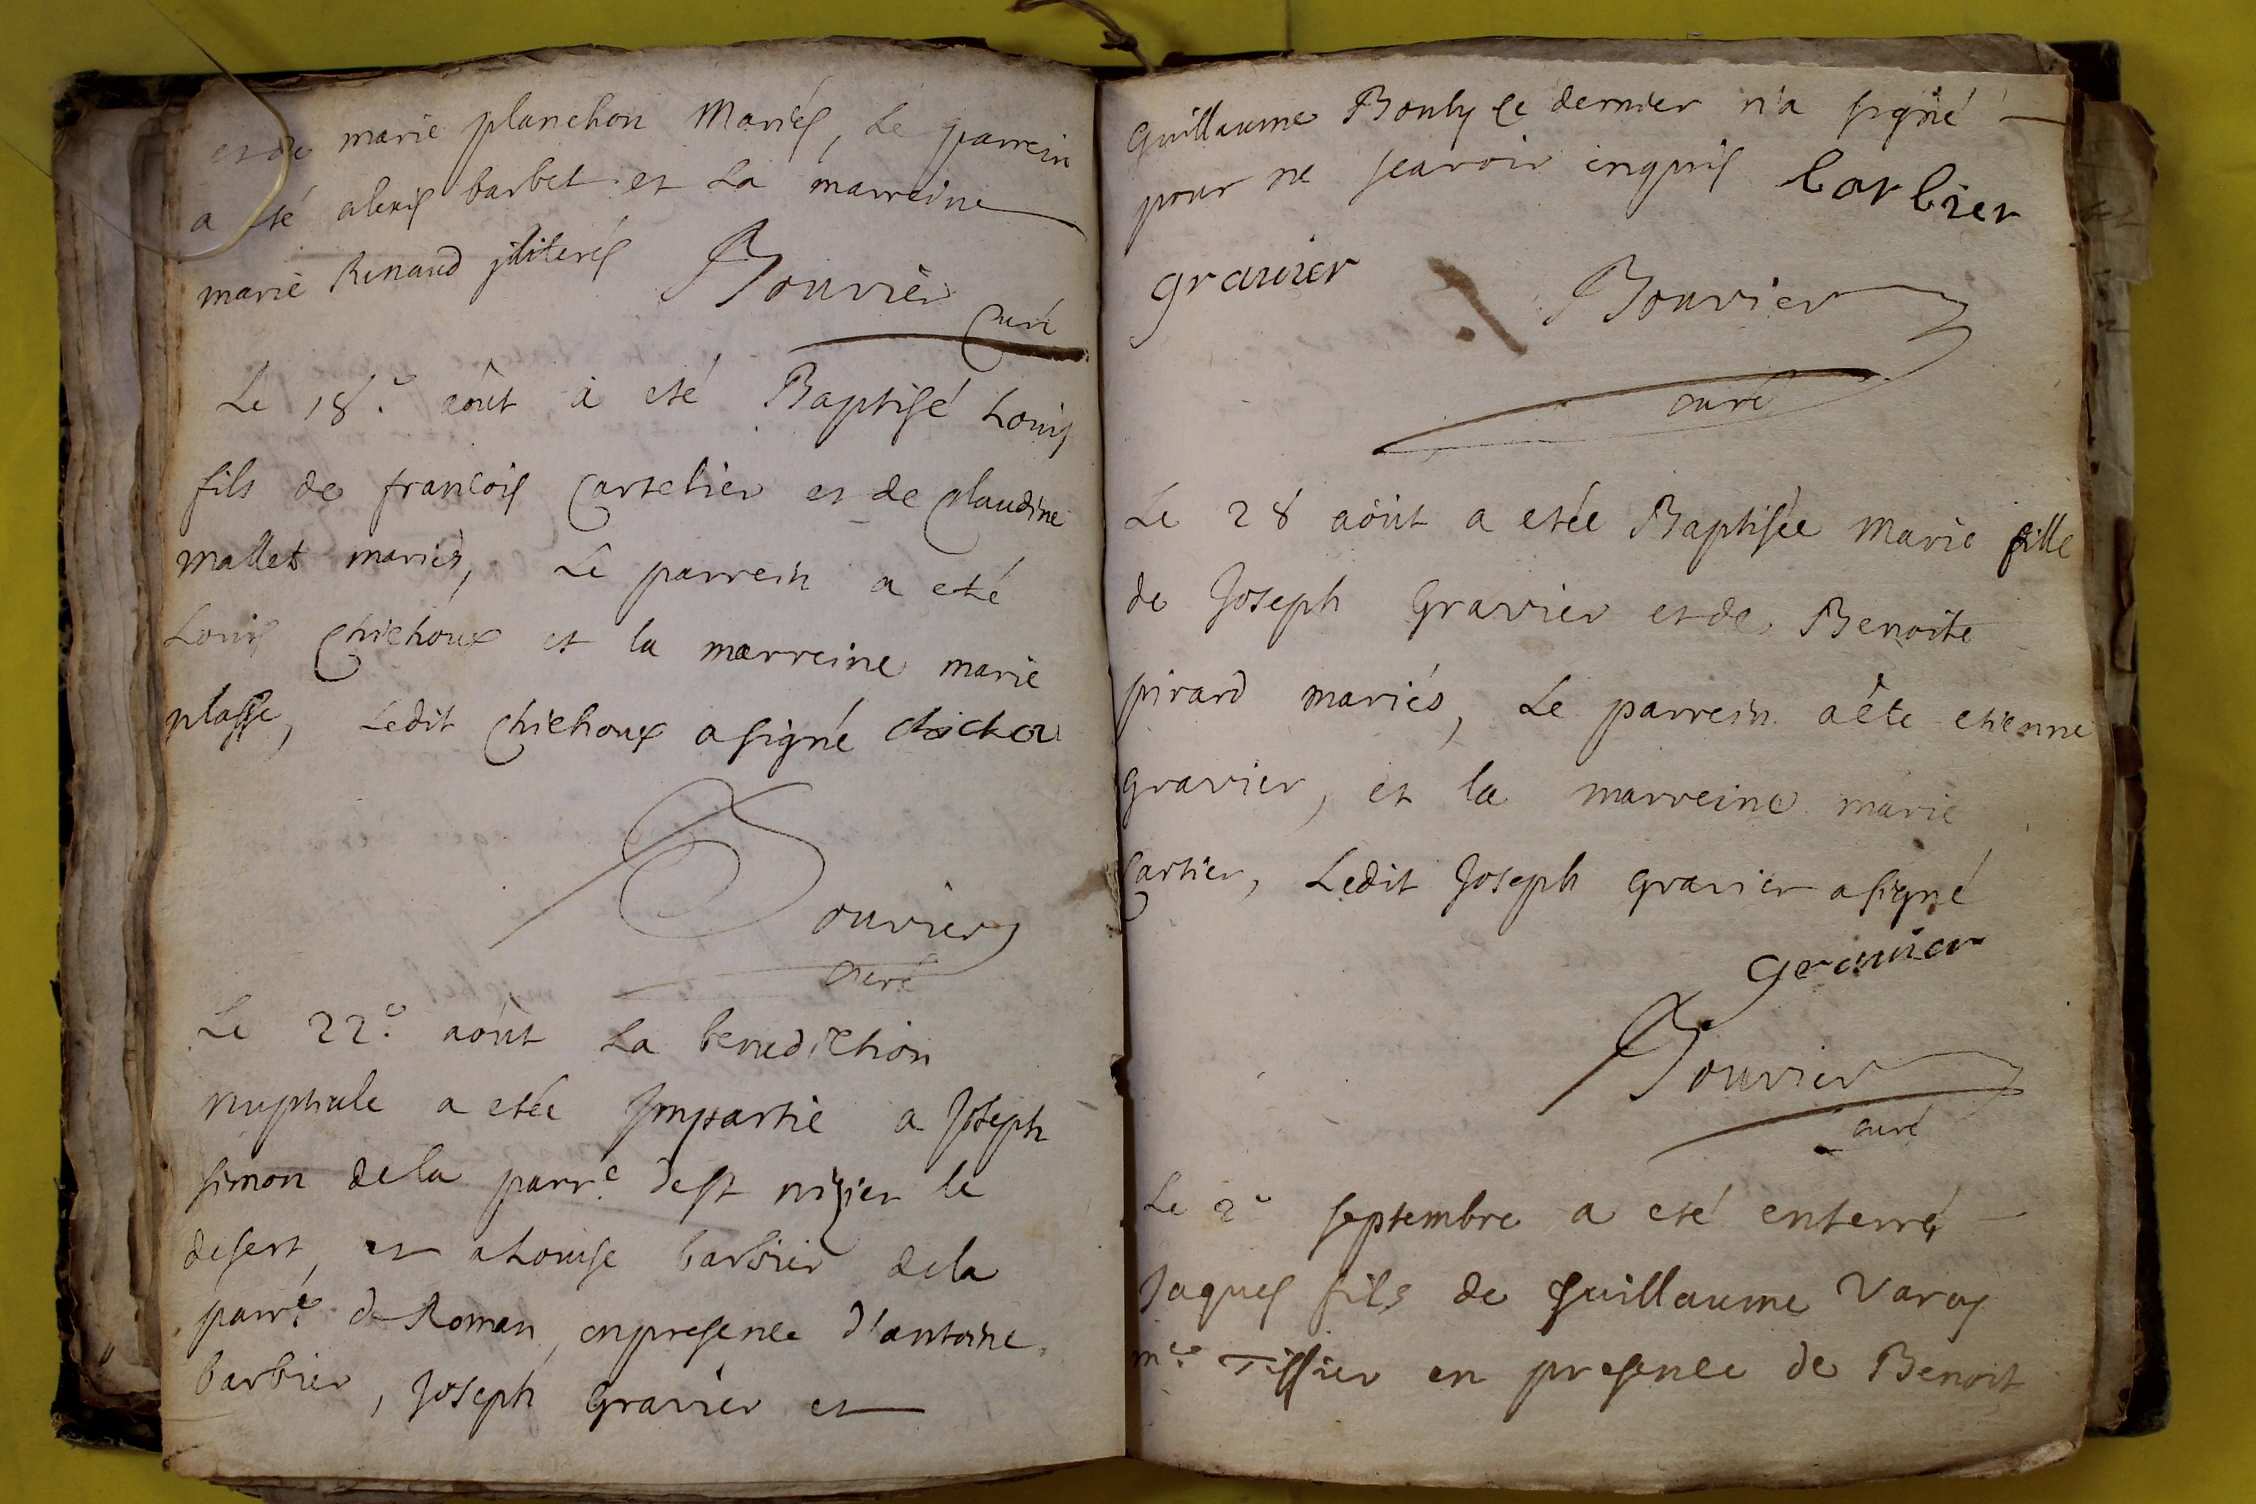 et de marie planchon Mariés, Le parrein
a eté alexis barbet et La marreine
marie Renaud jlliterés Bouvier
Curé
Le 18.e aôut a eté Baptisé Louis
fils de francois Cartelier et de Claudine
mallet mariés, Le parrein a eté
Louis Chichoux et la marreine marie
plasse, Ledit Chichoux a signé chichou
Bouvier
curé
Le 22.e aôut La benediction
nuptiale a etée Jmpartie a Joseph
simon dela parr.e de st nizier le
desert, et a Louise barbier dela
parr.e de Roman, en presence d'antoine
barbier, Joseph Gravier et
Guillaume Bouly ce dernier n'a signé
pour ne scavoir enquis barbier
gravier Bouvier
curé
Le 28 aôut a etée Baptisée Marie fille
de Joseph Gravier et de Benoite
pirard mariés, Le parrein a éte etienne
gravier, et la marreine marie
Cartier, Ledit Joseph Gravier a signé
gravier
Bouvier
curé
Le 2e septembre a eté enterré
Jaques fils de Guillaume Varay
m.e Tissier en presence de Benoit